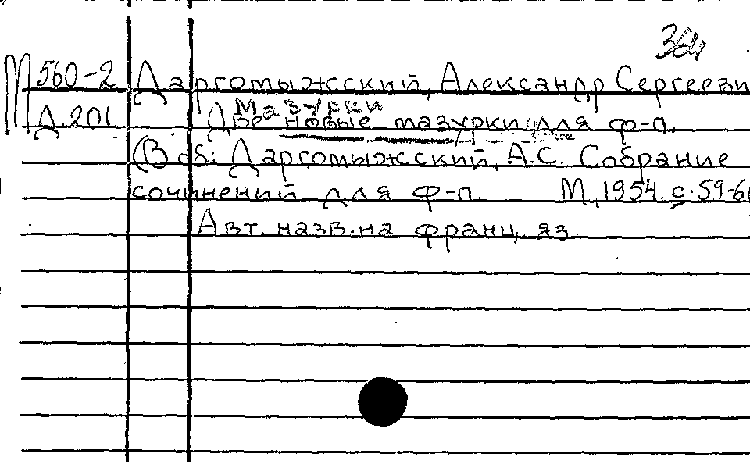 364
М 560-2 Даргомыжсский, Александр Сергееви
Д 201 Мазурки
Две новые мазурки для ф-п.
(В сб: Даргомыжсский, А.С. Собрание
сочинений для ф-п. М, 1954 с. 59-6
Авт. назв. на франц. яз